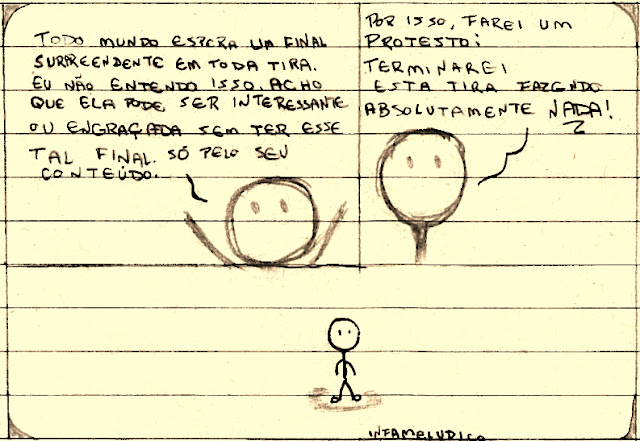 TODO MUNDO ESPERA UM FINAL
SURPREENDENTE EM TODA TIRA.
EU NÃO ENTENDO ISSO. ACHO
QUE ELA PODE SER INTERESSANTE
OU ENGRAÇADA SEM TER ESSE
TAL FINAL. SÓ PELO SEU
CONTEÚDO.
POR ISSO, FAREI UM
PROTESTO:
TERMINAREI
ESTA TIRA FAZENDO
ABSOLUTAMENTE NADA!
INFAMELUDICO